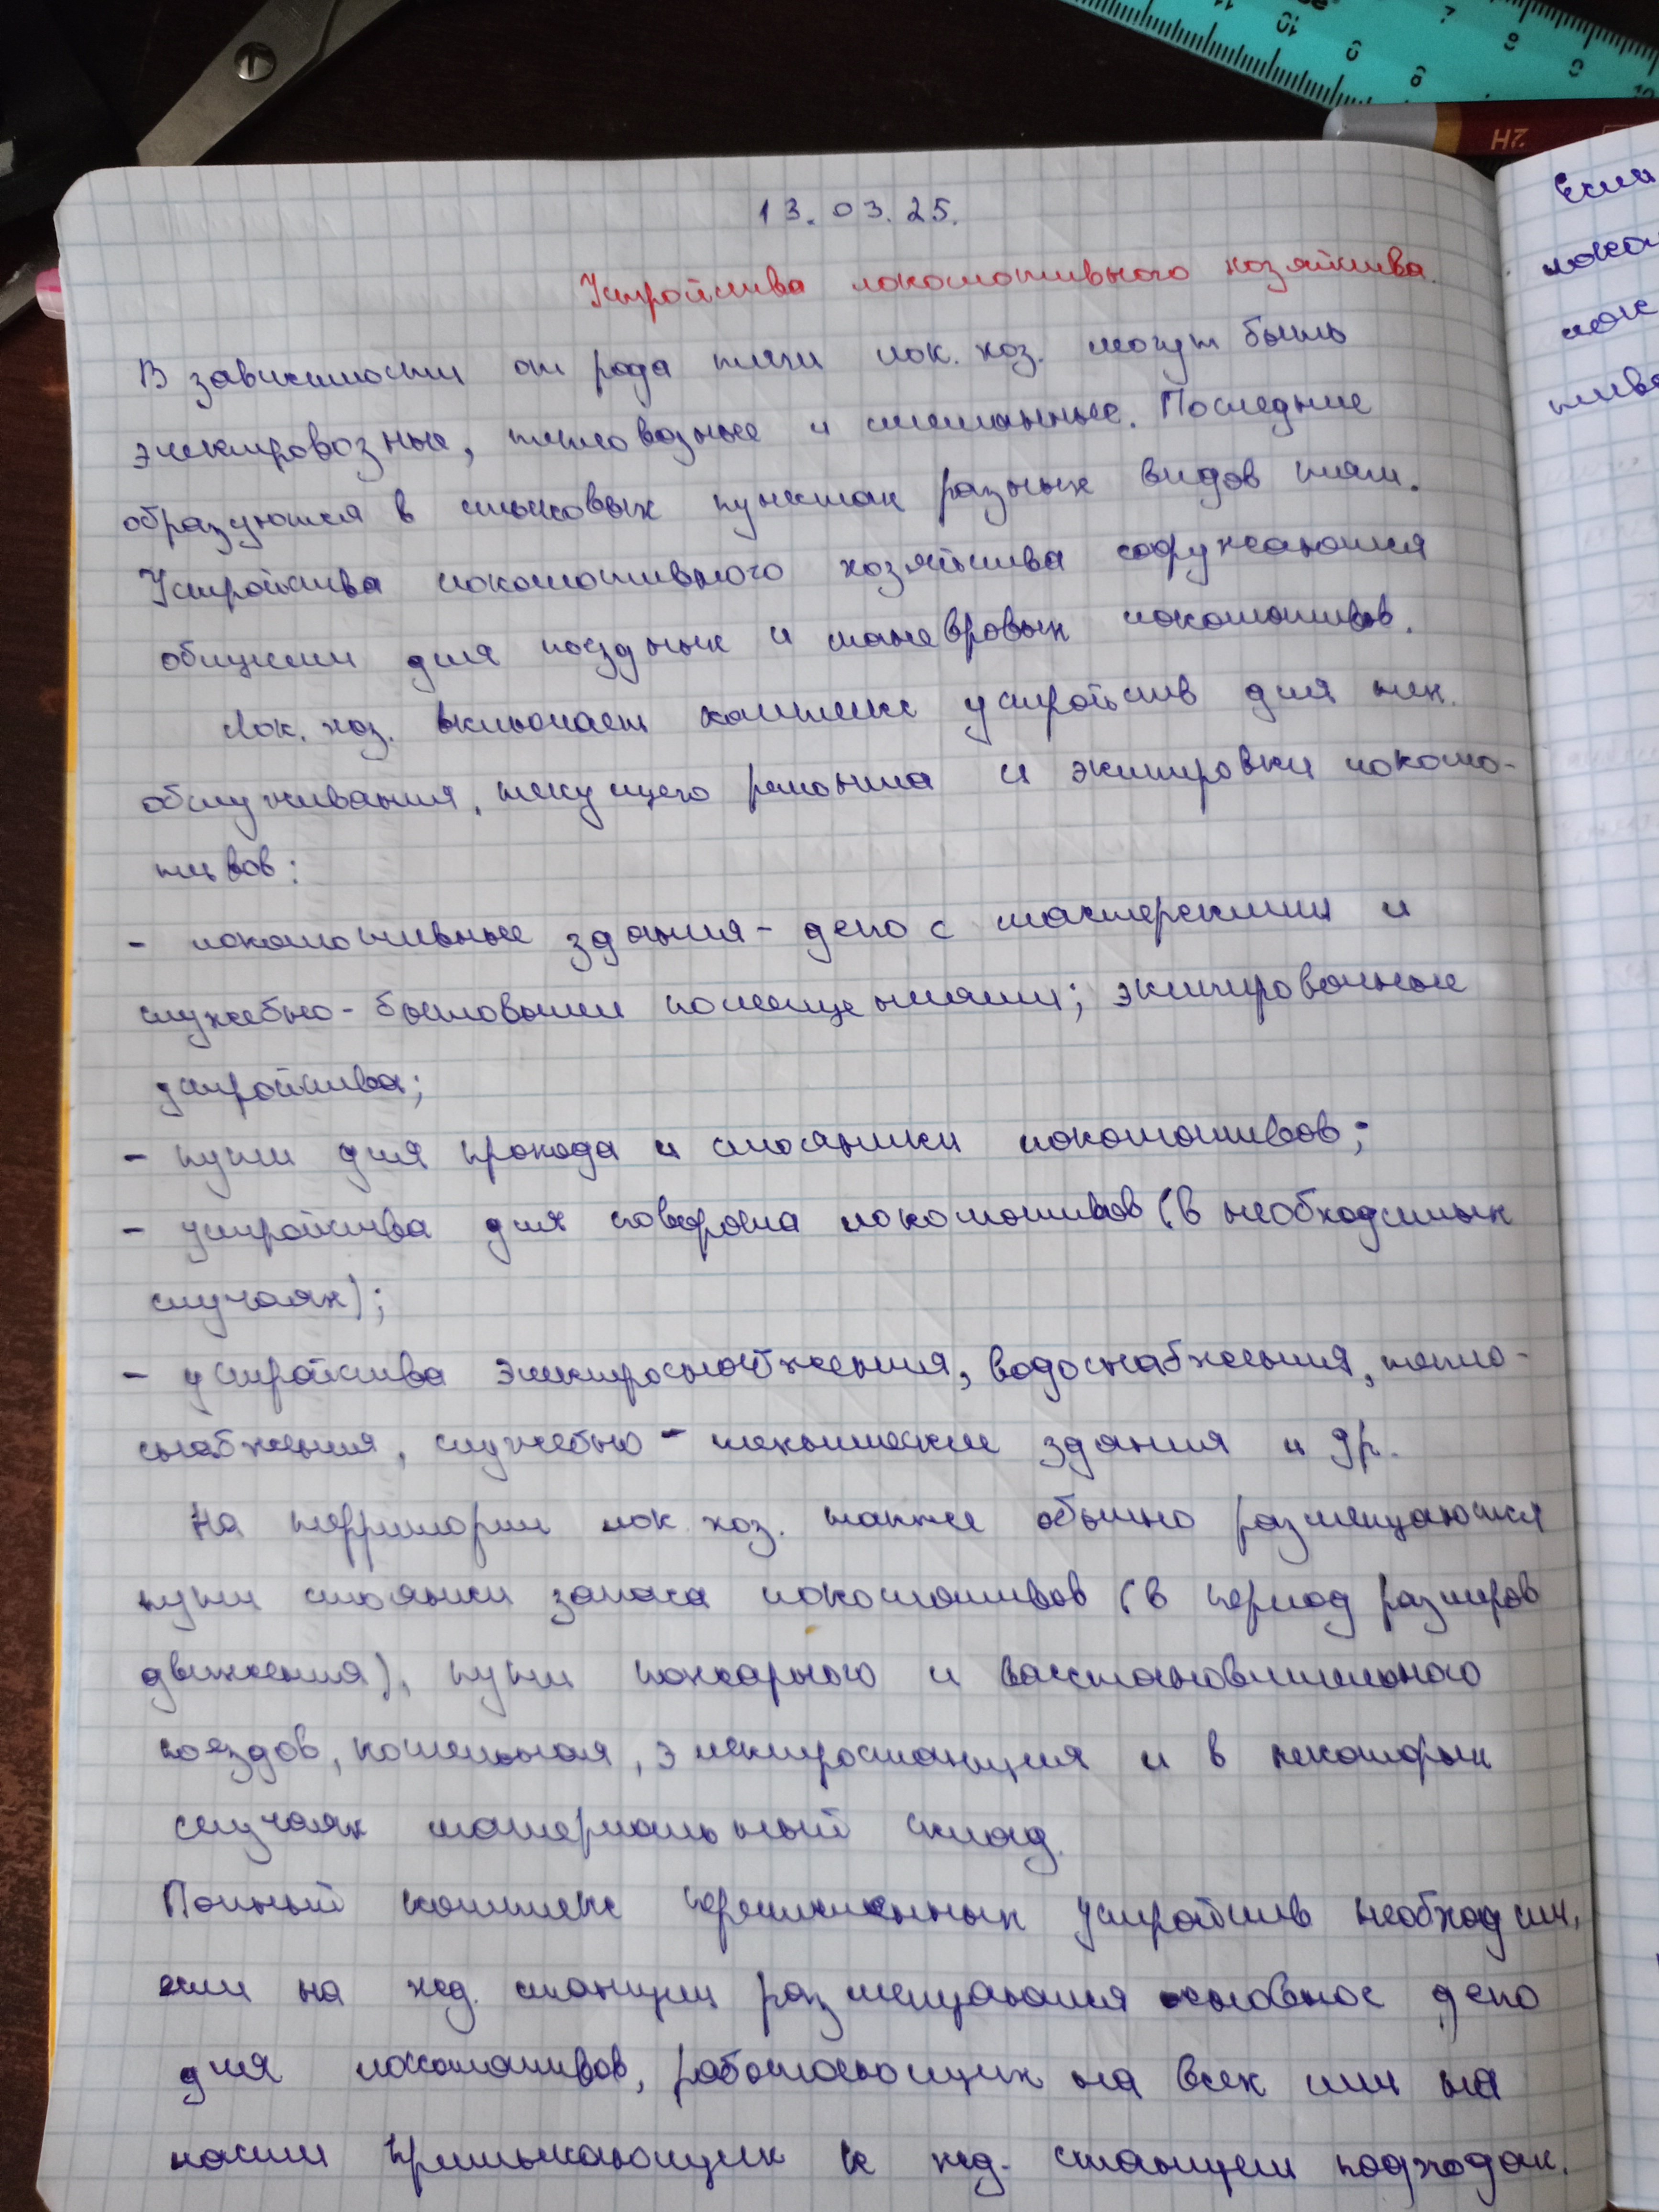 13.03.25.
Устройства локомотивного хозяйства.
В зависимости от рода тяги лок. хоз. могут быть
электровозные, тепловозные и смешанные. Последние
образуются в стыковых пунктах разных видов тяги.
Устройства локомотивного хозяйства сооружаются
общими для поездных и маневровых локомотивов.
Лок. хоз. включает комплекс устройств для тех.
обслуживания, текущего ремонта и экипировки локомо-
тивов:
- локомотивные здания - депо с мастерскими и
служебно-бытовыми помещениями; экипировочные
устройства;
- пути для прохода и стоянки локомотивов;
- устройства для поворота локомотивов (в необходимых
случаях);
- устройства электроснабжения, водоснабжения, тепло-
снабжения, служебно-технические здания и др.
На территории лок. хоз. также обычно размещаются
пути стоянки запаса локомотивов (в период размеров
движения), пути пожарного и восстановительного
поездов, котельная, электростанция и в некоторых
случаях материальный склад.
Полный комплекс перечисленных устройств необходим,
если на жд. станции размещаются основное депо
для локомотивов, работающих на всех или на
части примыкающих к жд. станции подходах.
Если
локо
лок
тиво
2H